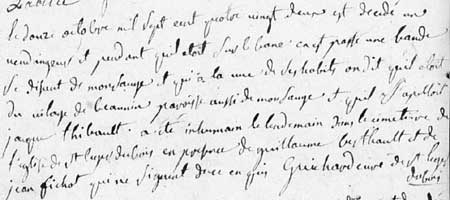 le douze octobre mil sept cent quatre vingt deux est decede un
vendingeur et pendant qu'il etoit sur le banc passe une bande
se disant de monsauge et qui a la vue des habits on dit qu'il etoit
du vilage de paroisse aussi de monsauge et qu'il s'apelloit
jacque thibault a ete inhummain le lendemain dans le cimetiere de
l'eglise de st dubois en presence de guillaume berthault et de
jean fichot qui ne signent de ce enquis Guichard curé de st
dubois